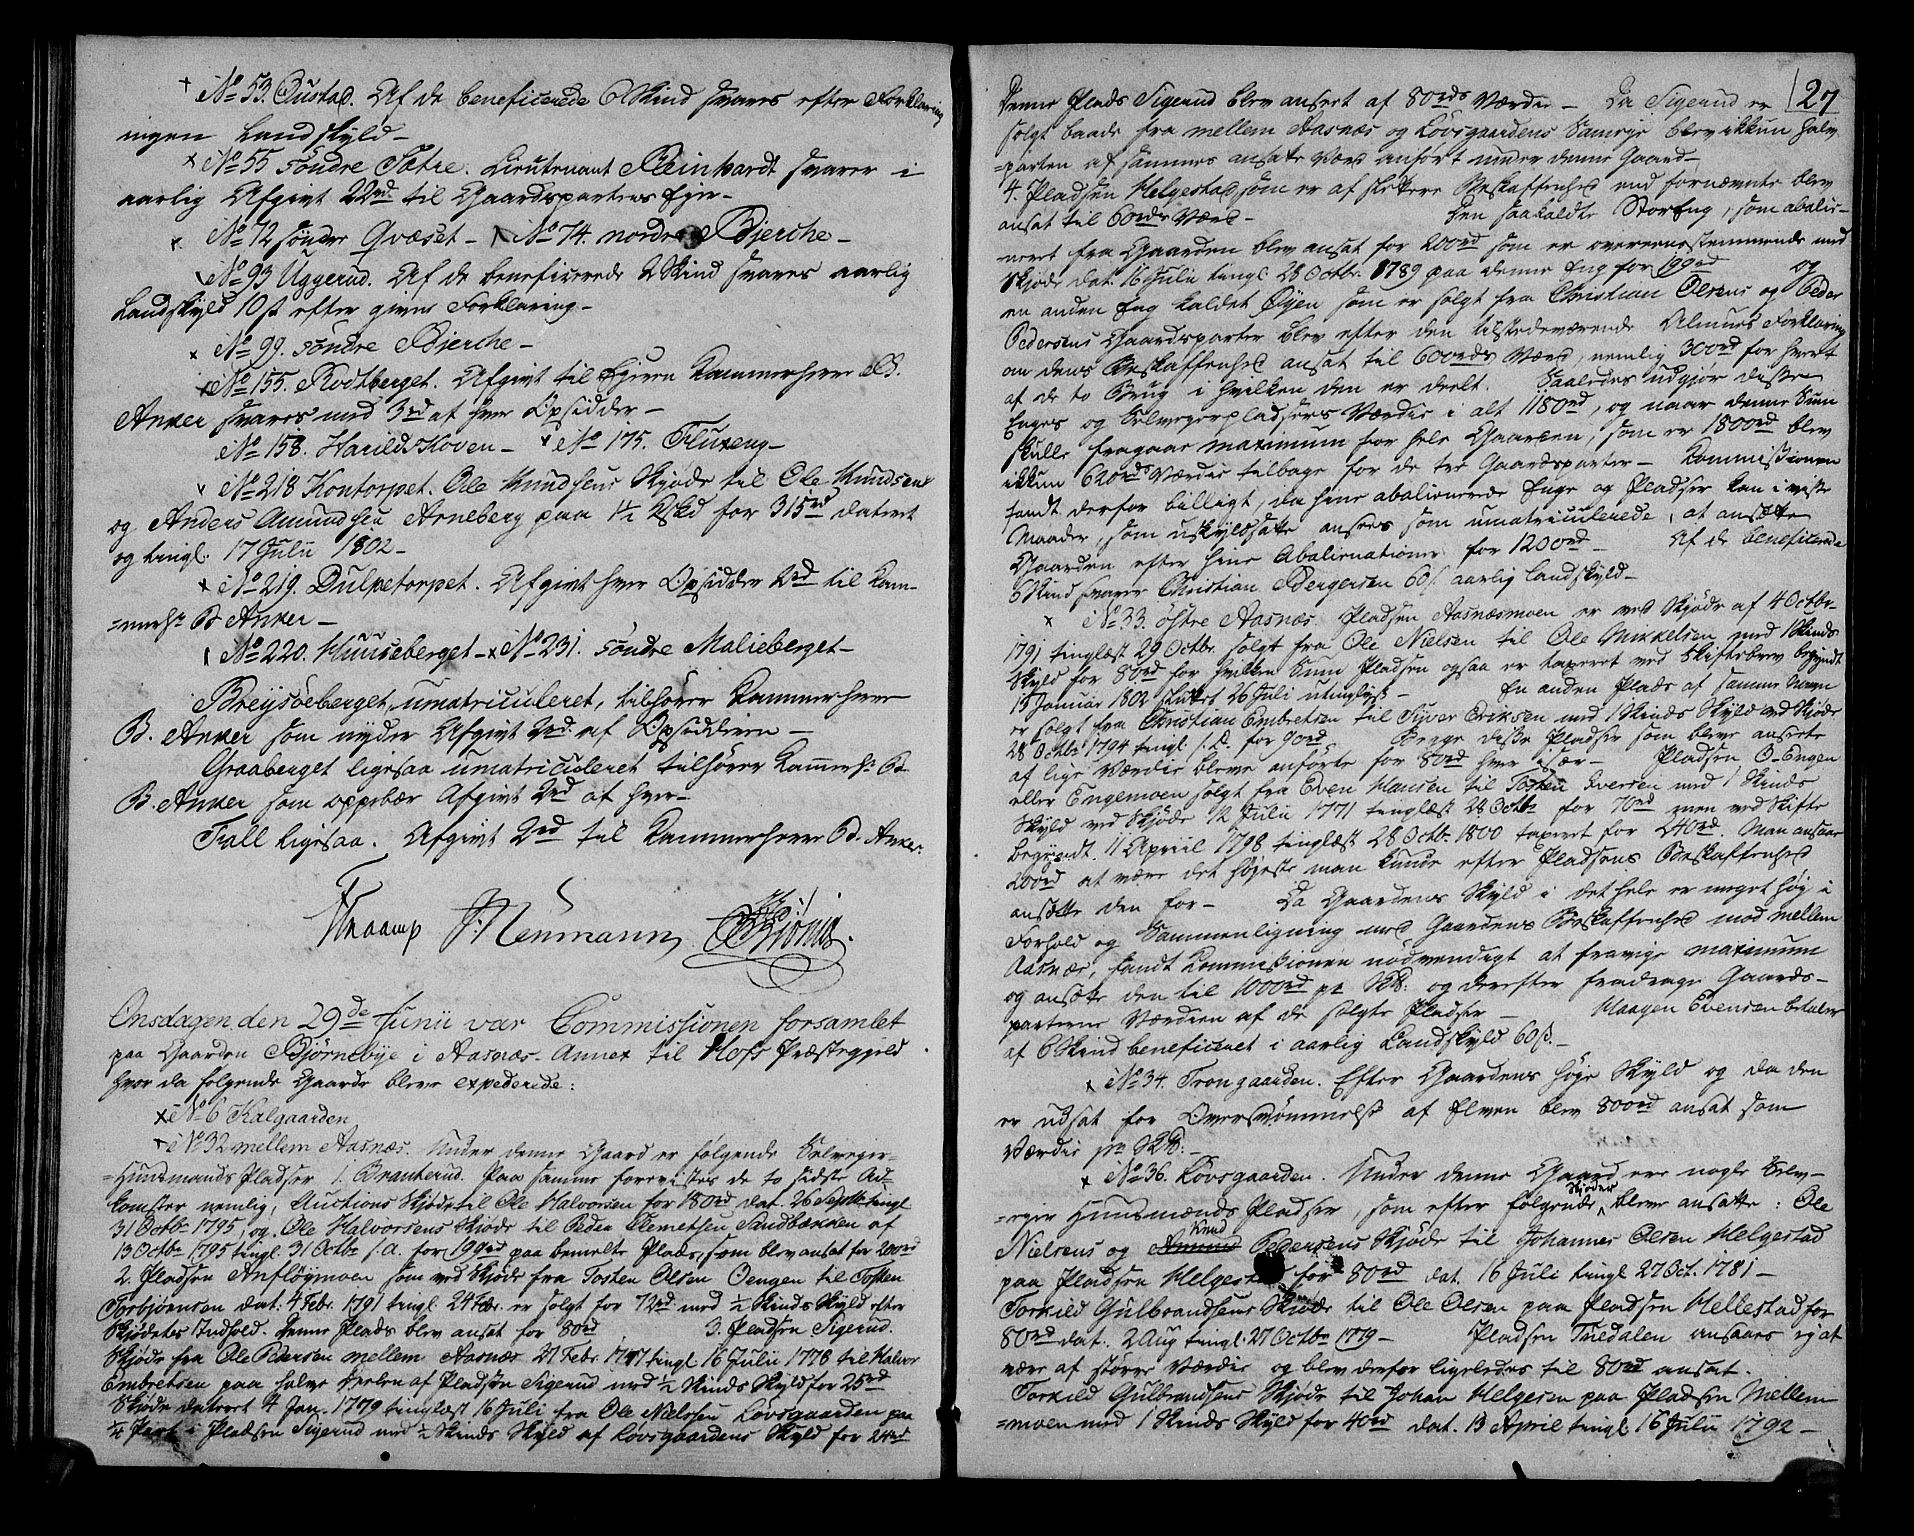 N° 53. Oustad. Af de beneficerede 6 Skind svares efter Forklaring
ingen Landskyld –
N° 55 søndre Sætre. Lieutenant Reinhardt svarer i
aarlig Afgivt 22rd til Gaardspartens Ejer –
N° 72 søndre Qvæset – N° 74. nordre Bjerche –
N° 93 Uggerud. Af de beneficerede 2 Skind svares aarlig
Landskyld 10 ß efter given Forklaring –
N° 99. søndre Bjerche –
N° 155. Rodtberget. Afgivt til Ejeren Kammerherre B.
Anker svares med 3rd af hver Opsidder –
N° 158. Harildskoven – N° 175. Fluxeng –
N° 218 Kontorpet. Ole Knudsens Skjøde til Ole Knudsen
og Anders Amundsen Arneberg paa 1½ Skd for 315rd dateret
og tingl. 17 Julii 1802 –
N° 219. Dulpetorpet. Afgivt hver Opsidder 2rd til Kam-
=merhr B Anker –
N° 220. Huuseberget – N° 231. søndre Malieberget –
Breysøeberget, umatriculeret, tilhører Kammerherre
B. Anker som nyder Afgivt 2rd af Opsidderen –
Graaberget ligesaa umatriculeret tilhører Kammerhr Bd
B. Anker som oppebær Afgivt 2rd af hver –
Fall ligesaa. Afgivt 2rd til Kammerherre Bd. Anker.
Knoamp Neumann
Onsdagen den 29de Junii var Commissionen forsamlet
paa Gaarden Bjørnebye i Aasnæs-Annex til Hofs Præstegield
hvor da følgende Gaarde bleve expederede:
N° 6 Kalgaarden
N° 32 mellem Aasnæs. Under denne Gaard er følgende Selveger-
=Huusmands Pladser 1. Brankerud. Paa samme forevistes de to sidste Ad-
komster nemlig, Auctions Skjøde til Ole Halvorsen for 180rd dat. 26 Septbr tingl
31 Octbr 1795, og Ole Halvorsens Skjøde til Peder Clemetsen Sandbækken af
13 Octbr 1795 tingl. 31 Octbr s. a. for 199rd paa bemelte Plads, som blev ansat for 200rd
2. Pladsen Anfløgmoen som ved Skjøde fra Tosten Olsen Oengen til Tosten
Torbjørnsen dat. 4 Febr. 1791 tingl. 24 Febr. er solgt for 72rd med ½ Skinds Skyld efter
Skjødets Indhold. Denne Plads blev ansat for 80rd 3. Pladsen Sigerud.
Skjøde fra Ole Pedersen mellem Aasnæs 21 Febr. 1777 tingl 16 Julii 1778 til Halvor
Embretsen paa halve Deelen af Pladsen Sigerud med ½ Skinds Skyld for 25rd
Skjøde dateret 4 Jan. 1779 tinglæst 16 Juli fra Ole Nielssen Løvsgaarden paa
¼ Part i Pladsen Sigerud med ½ Skinds Skyld af Løvsgaardens Skyld for 24rd
27
Denne Plads Sigerud blev anseet af 80rds Værdie – Da Sigerud er
solgt baade fra mellem Aasnæs og Løvsgaardens Sameje blev ikkun halv
=parten af sammes ansatte Værd anført under denne Gaard –
4. Pladsen Helgestad som er af slettere Beskaffenhed end fornævnte blev
ansat til 60rds Værd – Den saakaldte StorEng, som abalie-
=neret fra Gaarden blev ansat for 200rd som er overeensstemmende med
Skjøde dat. 16 Julii tingl. 28 Octbr. 1789 paa denne Eng for 199rd og
en anden Eng kaldet Øyen som er solgt fra Christian Olsens og Peder
Pedersens Gaardsparter blev efter den tilstedeværende Almues Forklaring
om dens Beskaffenhed ansat til 600rds Værd, nemlig 300rd for hvert
af de to Brug i hvilken den er deelt. Saaledes udgjør disse
Enges og Selvegerpladsers Værdie i alt 1180rd, og naar denne Sum
skulle fragaae maximum for hele Gaarden, som er 1800rd blev
ikkun 620rds Værdie tilbage for de tre Gaardsparter – Kommissionen
fandt derfor billigt, da hine abalienerede Enge og Pladser kan i visse
Maader, som uskyldsatte ansees som umatriculerede, at ansætte
Gaarden efter hine Abalienationer for 1200rd – Af de beneficerede
6 Skind svarer Christian Bergersen 60 ß aarlig Landskyld –
N° 33. østre Aasnæs. Pladsen Aasnæsmoen er ved Skjøde af 4 Octbr
1791 tinglæst 29 Octbr. solgt fra Ole Nielsen til Ole Mikkelsen med 1 Skinds
Skyld for 80rd for hvilken Sum Pladsen ogsaa er taxeret ved Skiftebrev begyndt
15 Januar 1802 sluttet 26 Juli utinglyst – En anden Plads af samme Navn
er solgt fra Christian Embretsen til Syver Eriksen med 1 Skinds Skyld ved Skjøde
28 Octbr 1794 tingl. s. D. for 90rd. Begge disse Pladser som bleve ansete
af lige Værdie bleve anførte for 80rd hver især – Pladsen O-Engen
eller Engemoen solgt fra Even Hansen til Tosten Iversen med 1 Skinds
Skyld ved Skjøde 12 Julii 1771 tinglæst 28 Octbr for 70rd men ved Skifte
begyndt 11 Apriil 1798 tinglæst 28 Octbr. 1800 taxeret for 240rd. Man ansaae
200rd at være det højeste man kunde efter Pladsens Beskaffenhed
ansætte den for – Da Gaardens Skyld i det hele er meget høj i
Forhold og Sammenligning med Gaardens Beskaffenhed mod mellem
Aasnæs, fandt Kommissionen nødvendigt at fravige maximum
og ansætte den til 1000rd pr Skd. og derefter fradrage Gaards-
parterne Værdien af de solgte Pladser – Haagen Evensen betaler
af 6 Skind beneficeret i aarlig Landskyld 60 ß. –
N° 34. Trongaarden. Efter Gaardens høje Skyld og da den
er udsat for Oversvømmelse af Elven blev 800rd ansat som
Værdie pr Skd: –
N° 36. Løvsgaarden. Under denne Gaard ere nogle Selv-
=eger Huusmænds Pladser, som efter følgende Skjøder bleve ansatte: Ole
Nielsens og Amund Knud Pedersens Skjøde til Johannes Olsen Helgestad
paa Pladsen Helgestad for 80rd dat. 16 Juli tingl 27 Oct. 1781 –
Torkild Gulbrandsens Skjøde til Ole Olsen paa Pladsen Hellestad for
80rd dat. 2 Aug tingl. 27 Octbr 1779 – Pladsen Tuedalen ansaaes ej at
være af større Værdie og blev derfor ligeledes til 80rd ansat.
Torkild Gulbrandsens Skjøde til Johan Helgesen paa Pladsen Mellem
=moen med 1 Skinds Skyld for 40rd dat. 13 April tingl 16 Julii 1792 –